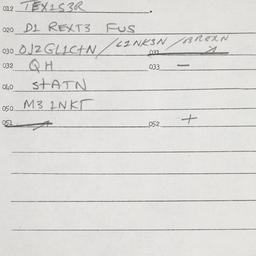 012 TEX1S3R
020 D1 REXT3 FUS
030 O12GL1C+N /L2NK3N /BREXN
032 QH 033 —
040 S+ATN
050 M3 1NKT
051 052 +